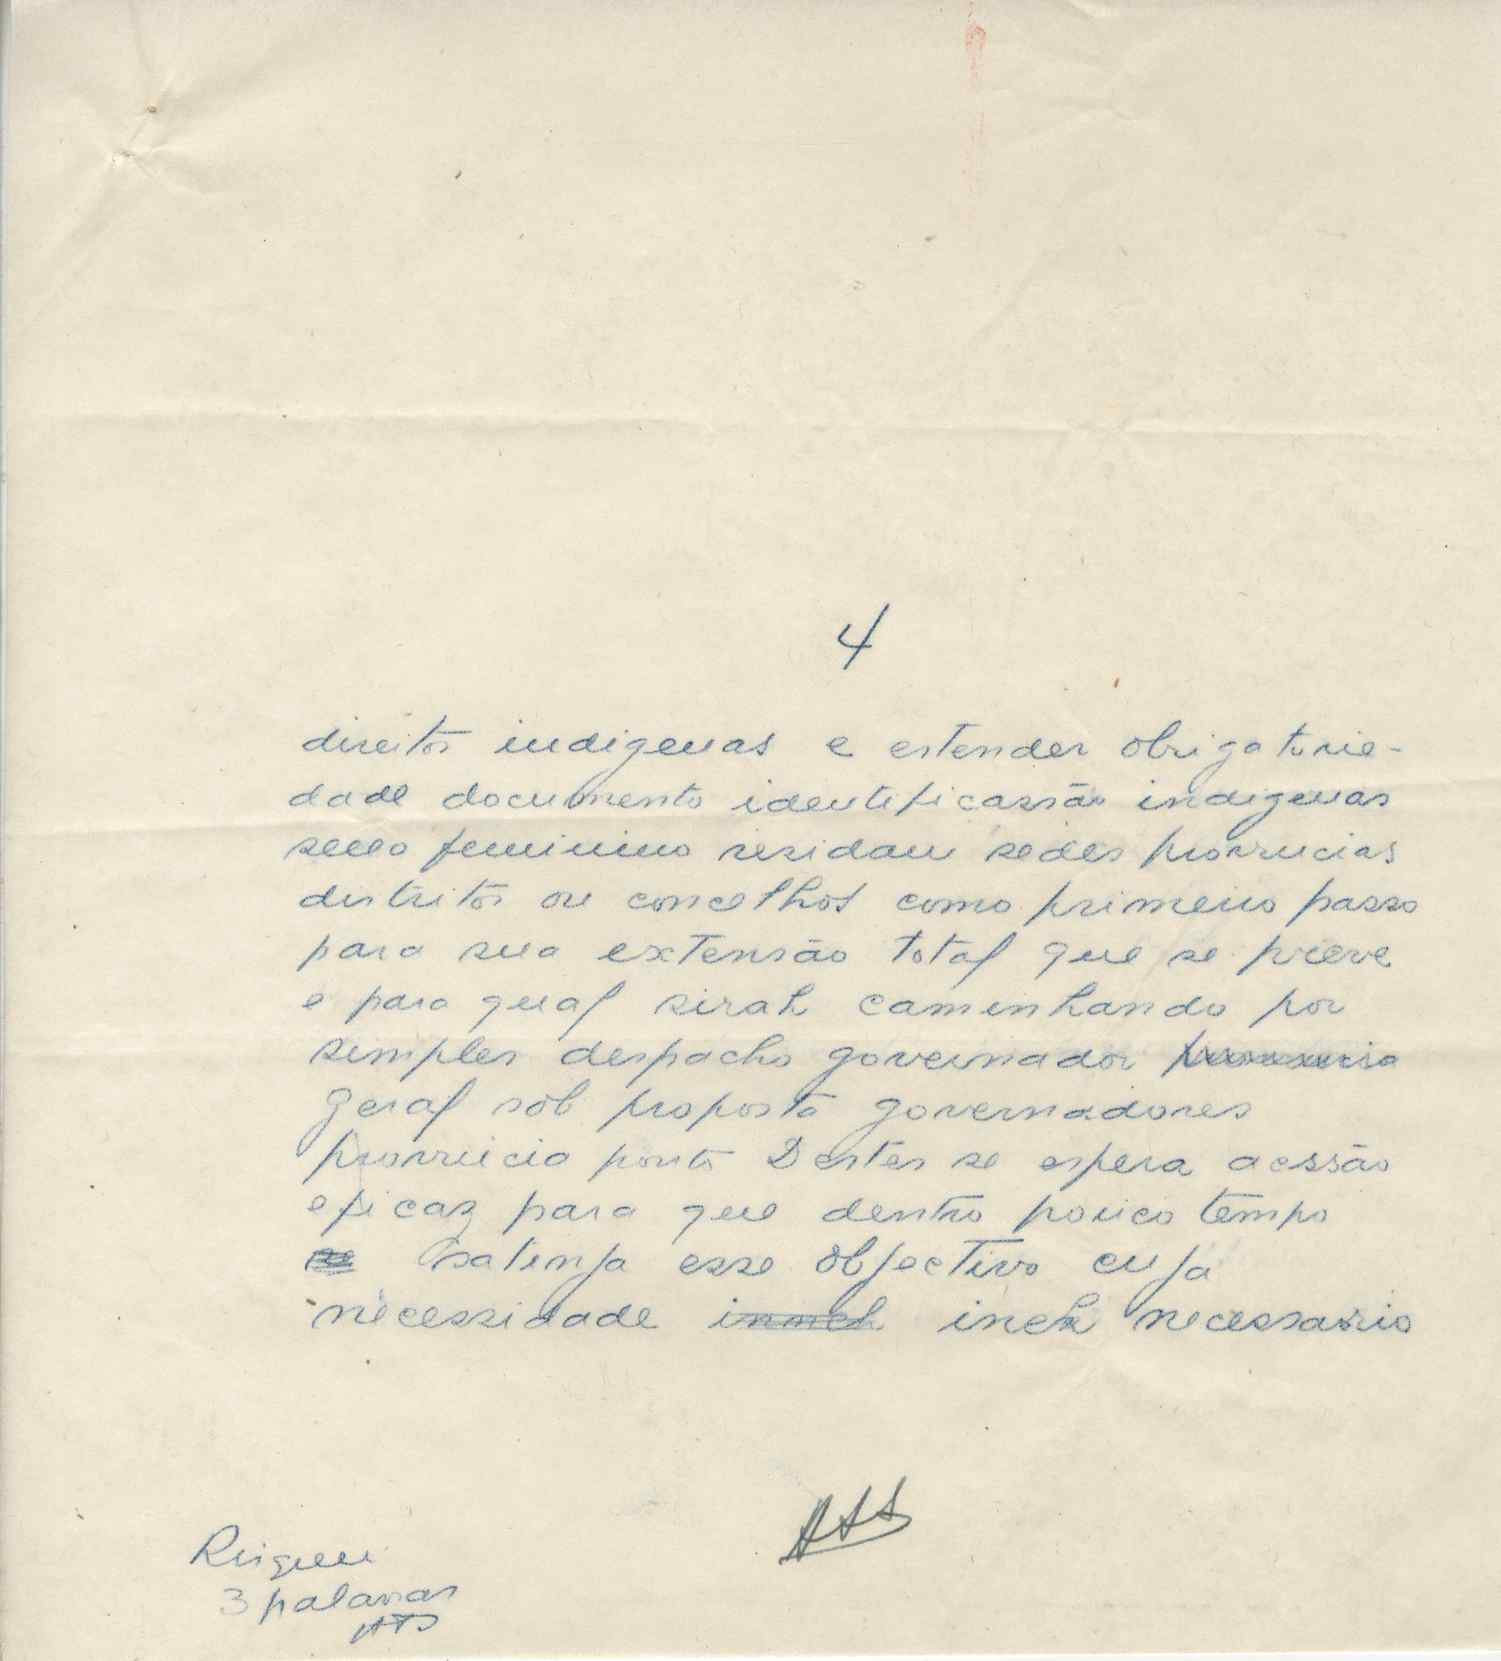 4
direitos indigenas e estender obrigatorie-
dade documento identificassão indigenas
sexo feminino residam sedes provincias
distritos ou concelhos como primeiro passo
para sua extensão total que se preve
e para qual sirah caminhando por
simples despacho governador provincia
geral sob proposta governadores
provincia ponto Destes se espera acssão
eficaz para que dentro pouco tempo
se satinja esse objectivo cuja
necessidade inmeh ineh necessario
Risquei
3 palavras